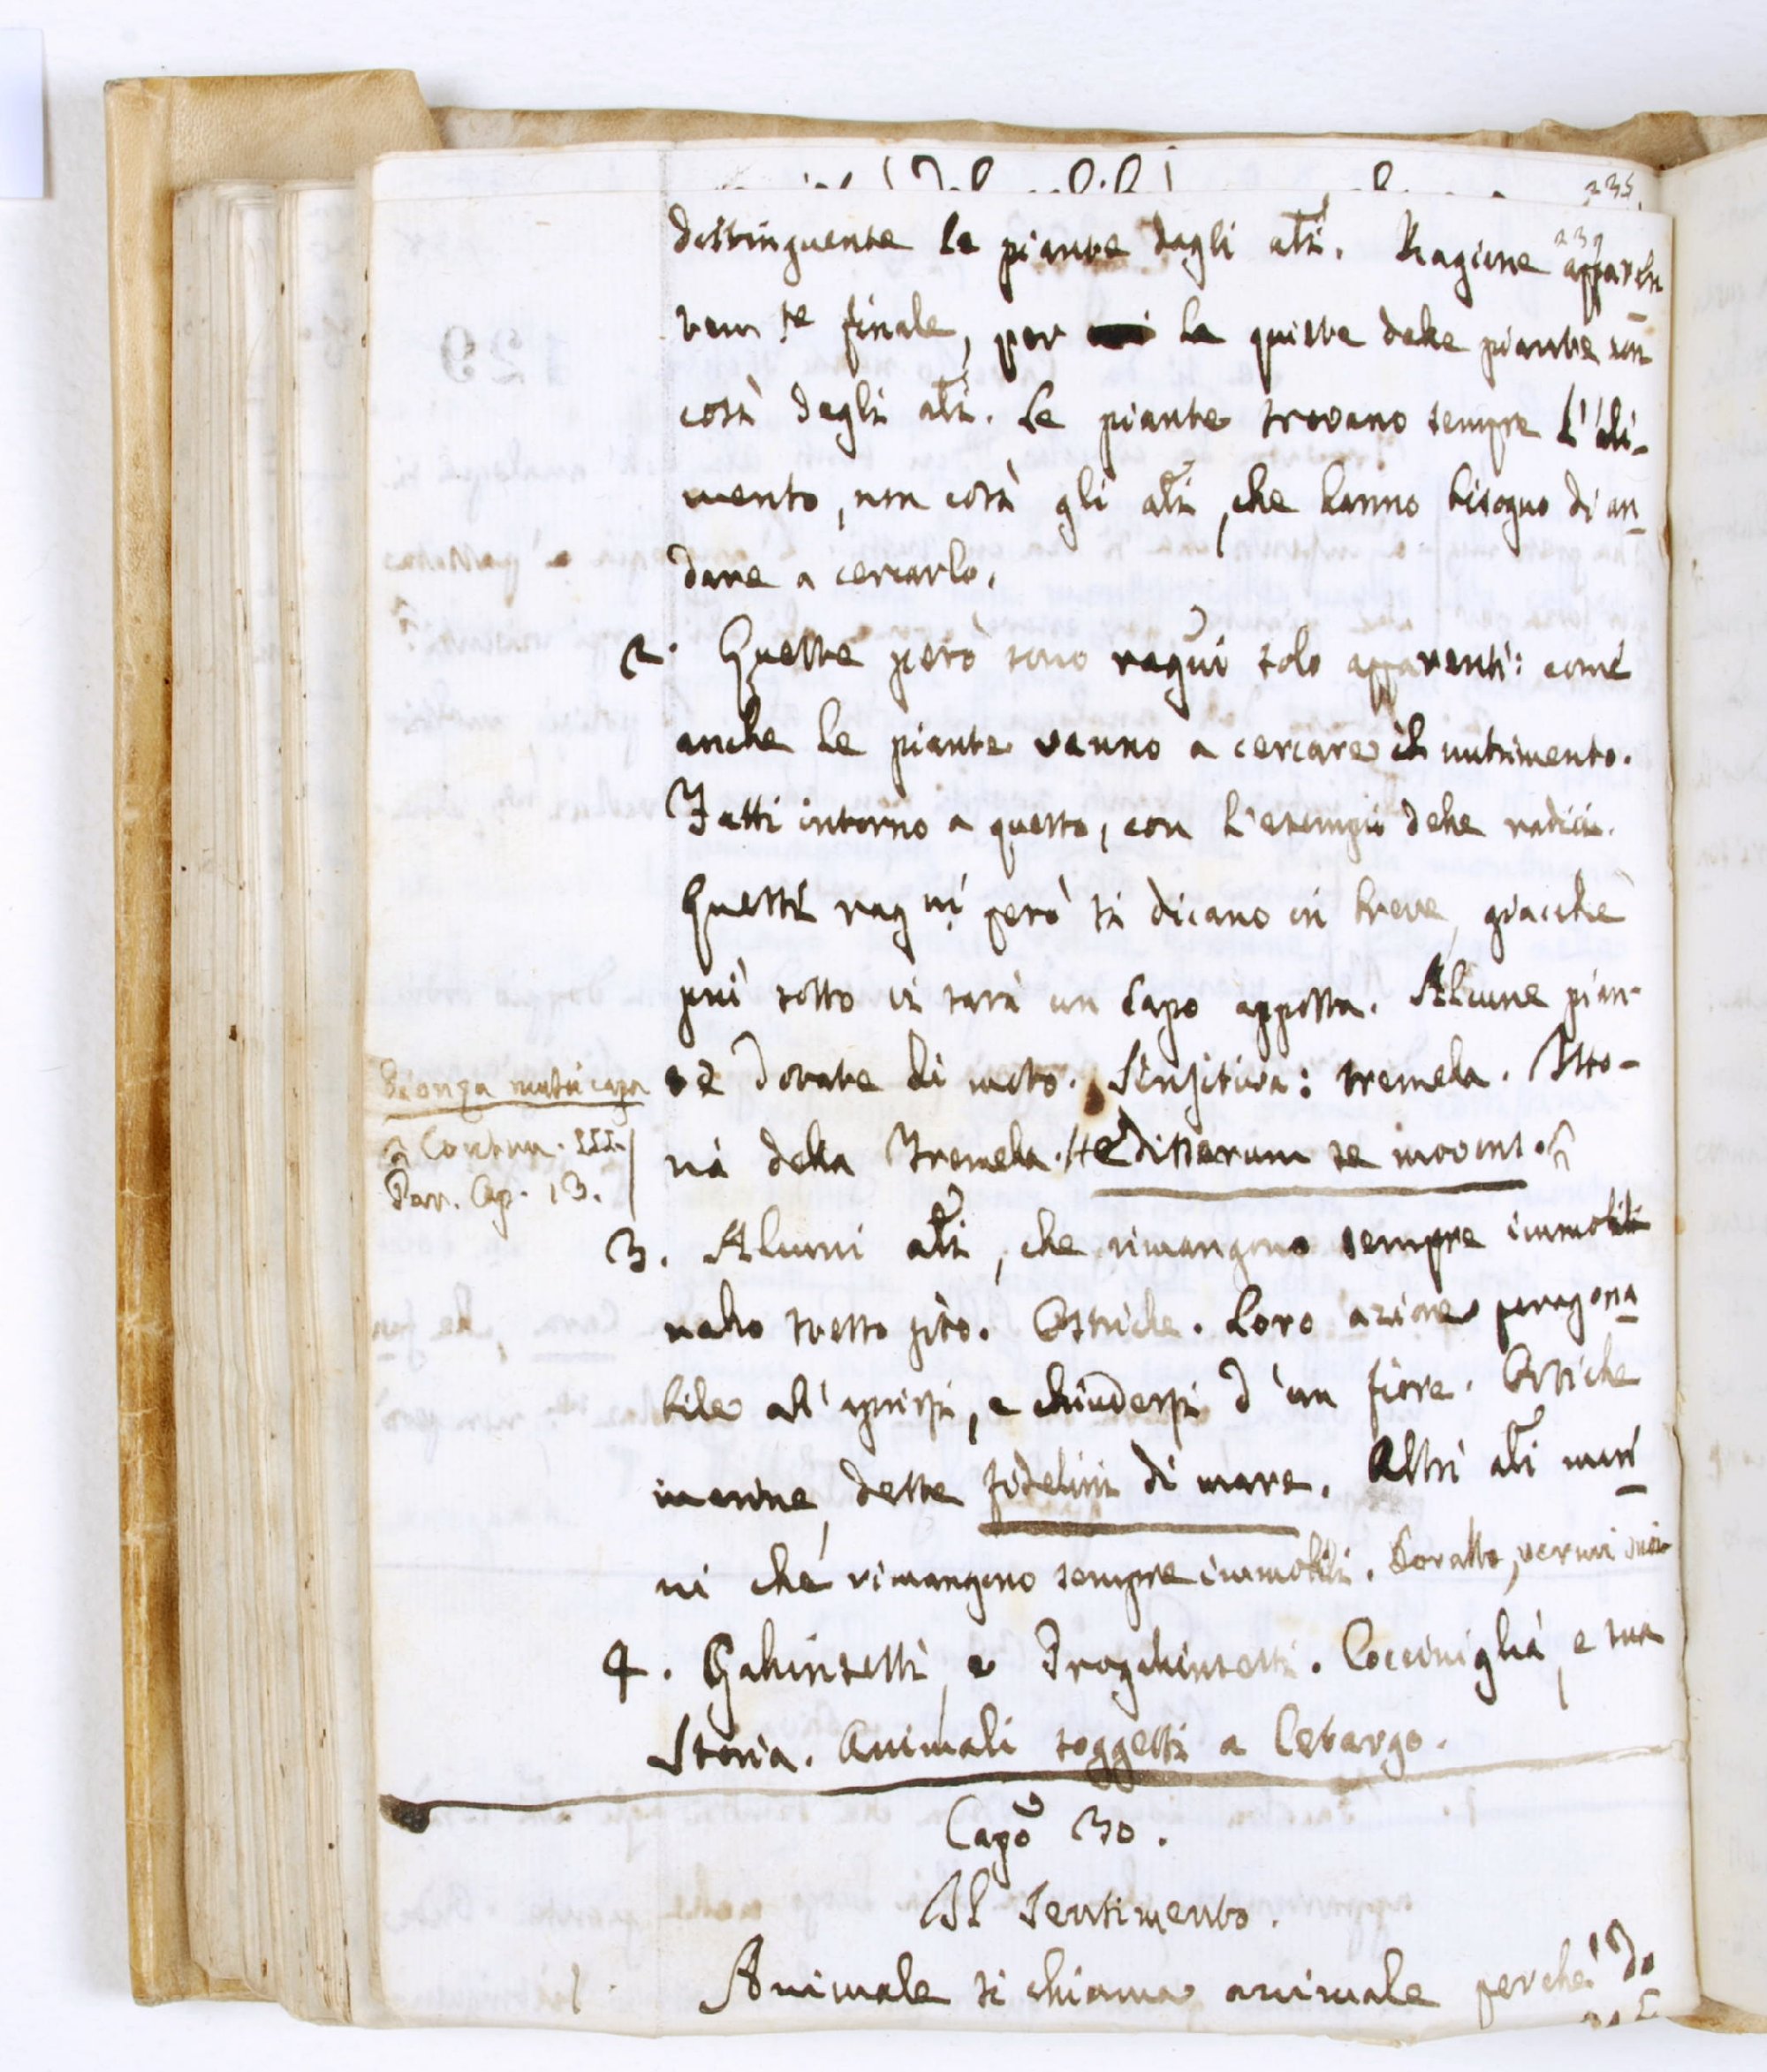 235
239
distinguente le piante dagli ali. Ragione apparen
tem te finale, per la quiete delle piante non
così degli ali. Le piante trovano sempre l'ali-
mento, non così gli ali, che hanno bisogno di an
dare a cercarlo.
2. Queste però sono ragni solo apparenti: come
anche le piante vanno a cercare il nutrimento.
Fatti intorno a questo, con l'esempio delle radici.
Questi ragni però si dicano in breve, giacchè
più sotto vi sarà un Capo apposta. Alcune pian-
te dotate di moto. Sensitiva: tremella. Isto-
ria della Tremella. se disserunt se movent.
capo
Contem. III.
Par. Cap. 13.
3. Alcuni ali, che rimangono sempre immobili
nello stesso sito. Ostriche. Loro azione paragona
bile all'aprirsi, e chiudersi d'un fiore. Ostriche
marine, dette fidelini di mare. Altri ali mari
ni che rimangono sempre immobili. Corallo, vermi
4. Gallinsetti, e Progallinsetti. Cocciniglia, e sua
Storia. Animali soggetti a Letargo.
Capo 30.
Il Sentimento.
Animale si chiama animale perchè